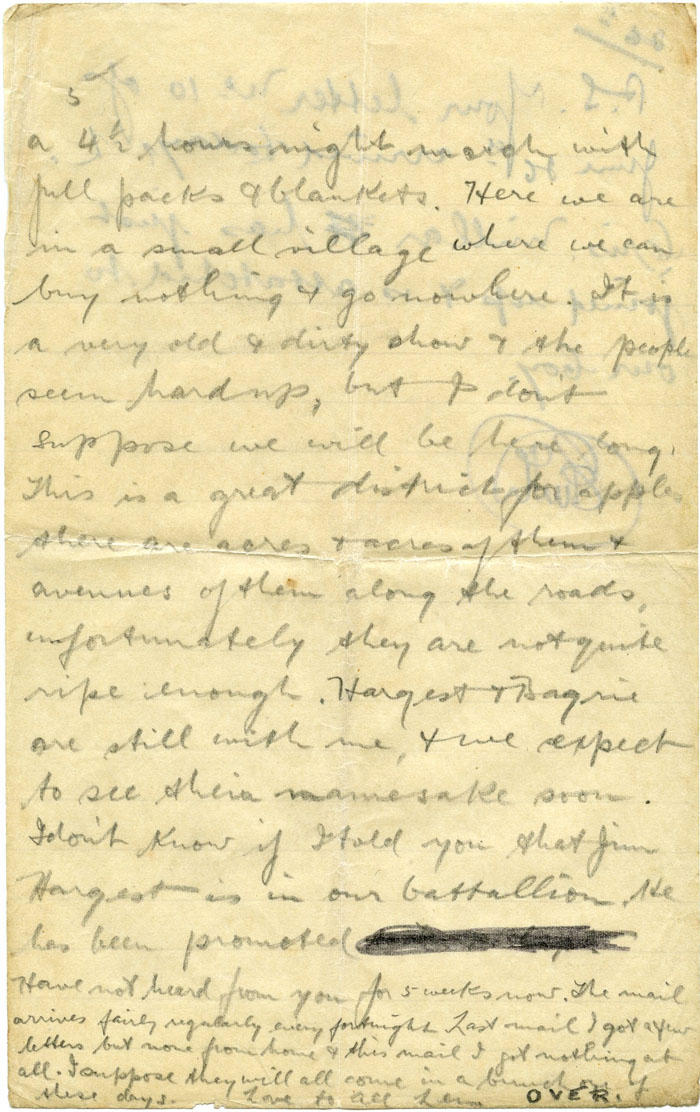 5
a 4½ hours night march with
full packs & blankets. Here we are
in a small village where we can
buy nothing & go nowhere. It is
a very old & dirty show & the people
seem hard up, but I don't
suppose we will be here long.
This is a great district for apples
there are acres & acres of them &
avenues of them along the roads,
unfortunately they are not quite
ripe enough. Hargest & Bagrie
are still with me, & we expect
to see their namesake soon.
I don't know if I told you that Jim
Hargest is in our battallion. He
has been promoted
Have not heard from you for 5 weeks now. The mail
arrives fairly regularly every fortnight. Last mail I got a few
letters but none from home & this mail I got nothing at
all. I suppose they will all come in a bunch one of
these days. Love to all Len
OVER.